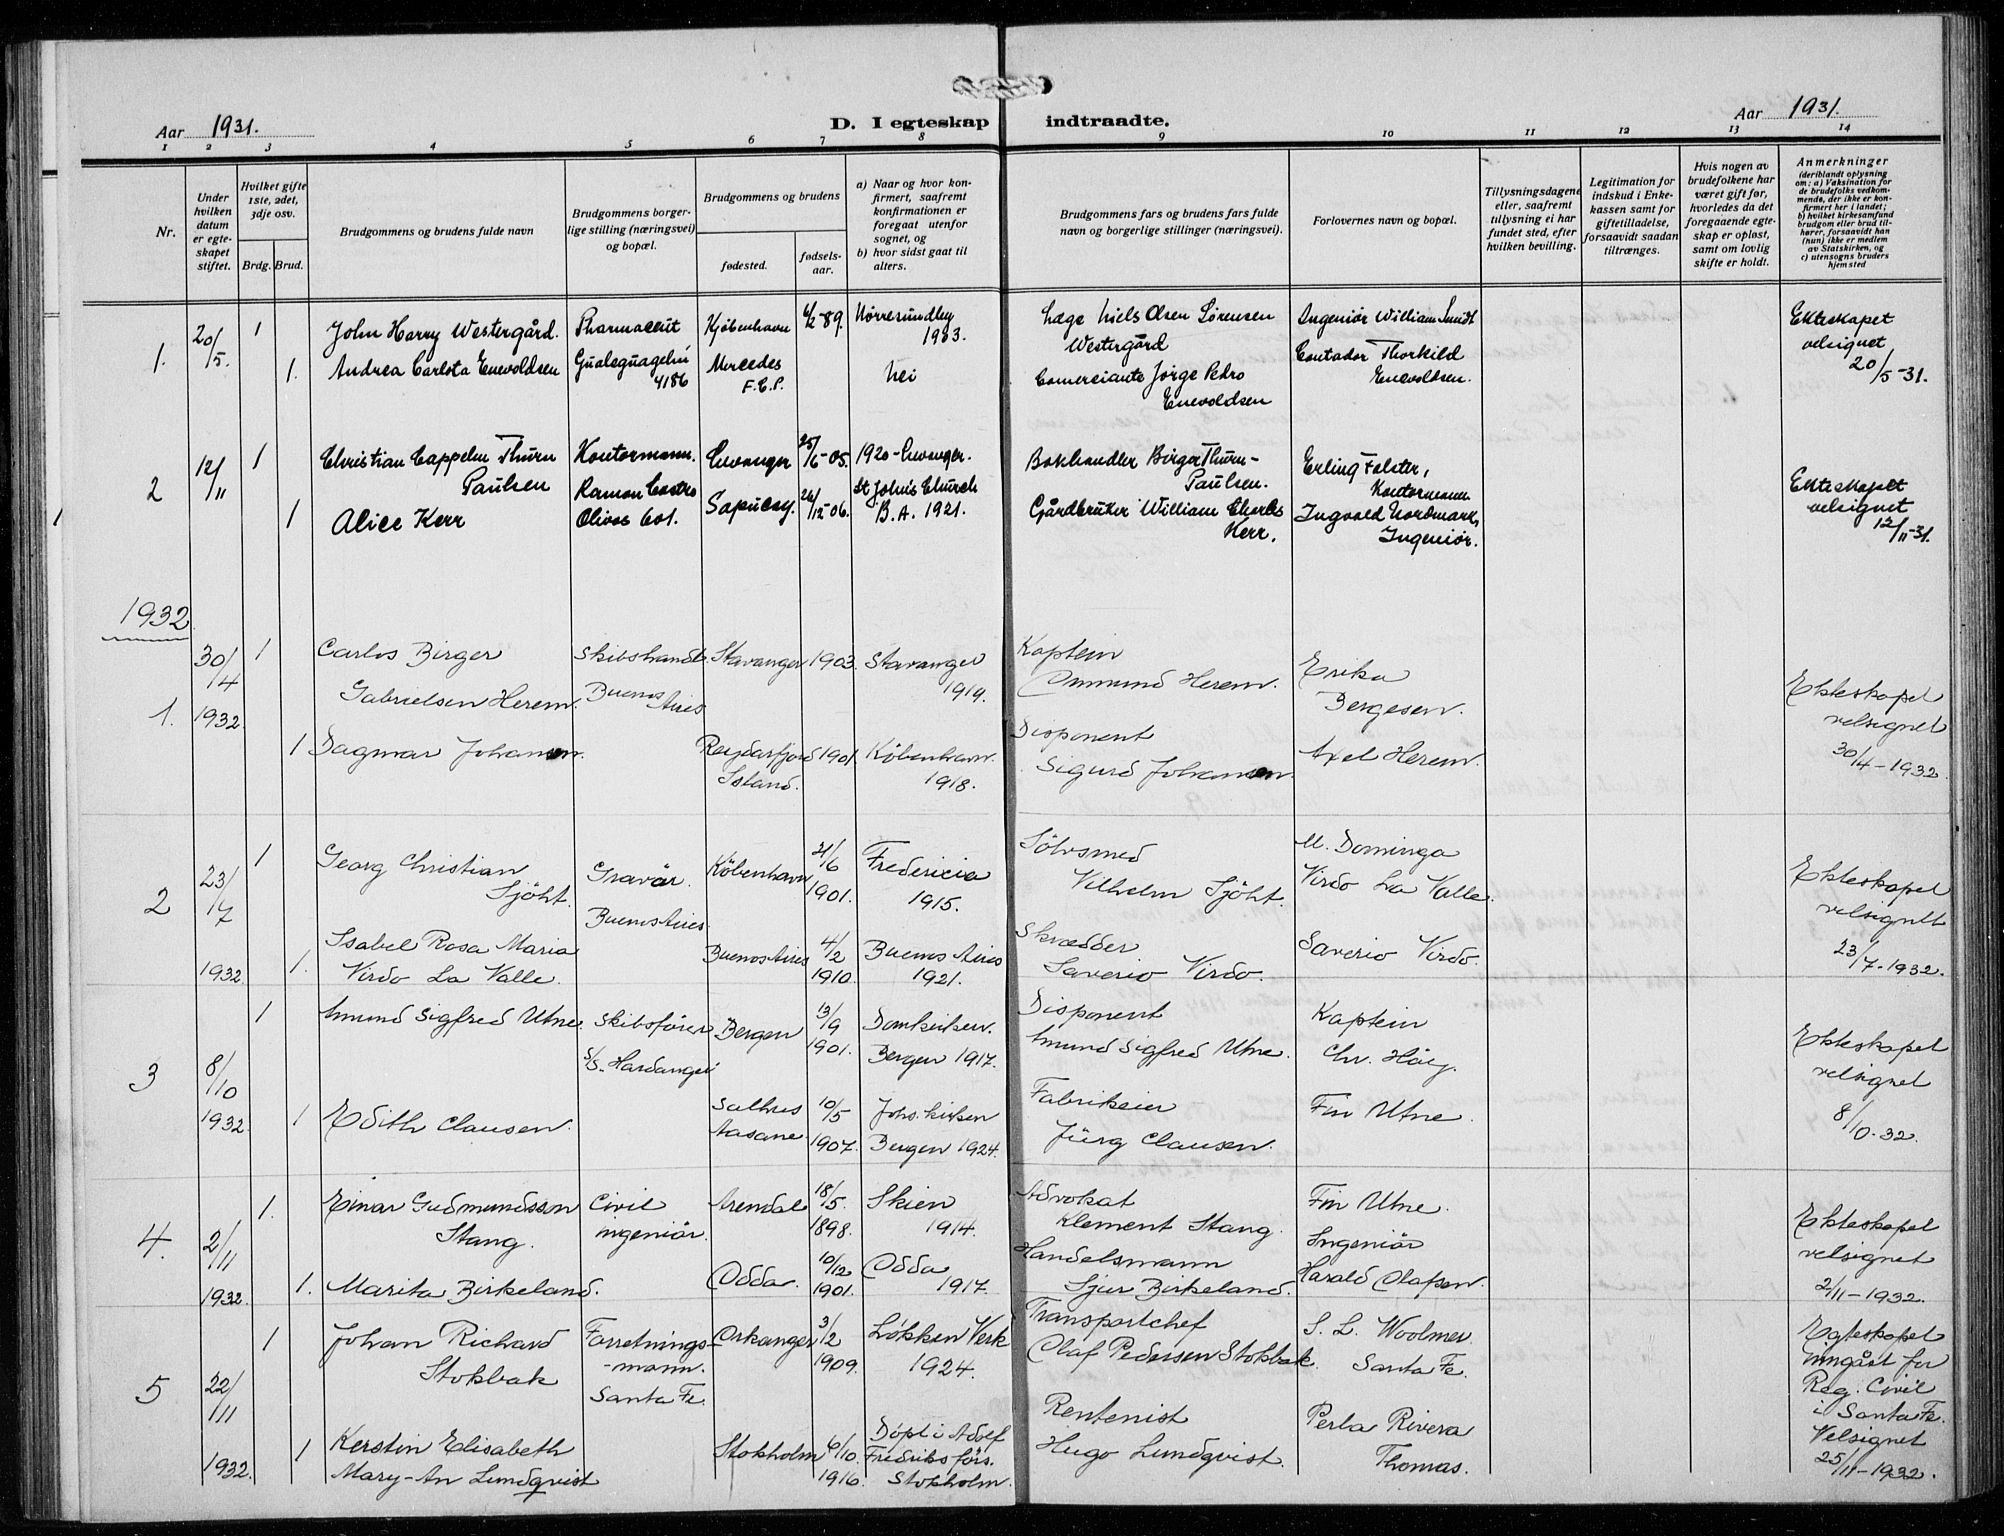 Aar 1931.
D. I egteskap indtraadte.
Aar 1931.
1 2 3 4 5 6 7 8 9 10 11 12 13 14
Nr.
Under hvilken datum er egteskapet stiftet.
Hvilket gifte 1ste, 2det, 3dje osv.
Brdg. Brud.
Brudgommens og brudens fulde navn
Brudgommens borgerlige stilling (næringsvei) og bopæl.
Brudgommens og brudens
fødested.
fødselsaar.
a) Naar og hvor konfirmert, saafremt konfirmationen er foregaat utenfor sognet, og
b) hvor sidst gaat til alters.
Brudgommens fars og brudens fars fulde navn og borgerlige stillinger (næringsvei).
Forlovernes navn og bopæl.
Tillysningsdagene eller, saafremt tillysning ei har fundet sted, efter hvilken bevilling.
Legitimation for indskud i Enkekassen samt for giftetilladelse, forsaavidt saadan tiltrænges.
Hvis nogen av brudefolkene har været gift før, hvorledes da det foregaaende egteskap er opløst, samt om lovlig skifte er holdt.
Anmerkninger
(deriblandt oplysning om: a) Vaksination for de brudefolks vedkommende, der ikke er konfirmert her i landet; b) hvilket kirkesamfund brudgom eller brud tilhører, forsaavidt han (hun) ikke er medlem av Statskirken, og c) utensogns bruders hjemsted
1. 20/5. 1 John Harry Westergård. Pharmaceut Kjöbenhavn 6/2-89. Nörresundby 1903. Læge Niels Olsen Sørensen Westergård Ingeniør William Sundt Ekteskapet velsignet 20/5-31.
1. Andrea Carlota Enevoldsen Gualeguaychú 4186 Mercedes F.C.P. Nei Comerciante Jorge Pedro Enevoldsen Contador Thorkild Enevoldsen.
2 12/11 1 Christian Cappelen Thurn Paulsen Kontormann. Levanger 25/6-05. 1920-Levanger. Bokhandler Birger Thurn-Paulsen. Erling Falster, Kontormann Ekteskapet velsignet 12/11-31.
1 Alice Kerr Ramon Castro Olivos Col. Sapucay. 26/12-06. St John's Church B.A. 1921. Gårdbruker William Charles Kerr. Ingvald Nordmark, Ingeniør.
1932
1. 30/4 1932 1 Carlos Birger Gabrielsen Herem. Skibshandl. Buenos Aires Stavanger 1903. Stavanger 1919. Kaptein Ommund Herem. Erika Bergesen. Ekteskapet velsignet 30/4-1932.
1 Dagmar Johansen. Reydarfjord Island. 1901. København 1918. Disponent Sigurd Johansen. Axel Herem.
2 23/7 1932. 1 Georg Christian Sjöht. Gravör. Buenos Aires København 21/6 1901. Fredericia 1915. Sölvsmed Vilhelm Sjöht. M. Dominga Virdo La Valle. Ekteskapet velsignet 23/7-1932.
1. Isabel Rosa Maria Virdo La Valle. Buenos Aires 4/2 1910. Buenos Aires 1921. Skrædder Saverio Virdo. Saverio Virdo.
3 8/10 1932. 1 Amund Sigfred Utne. Skibsfører S/S. Hardanger Bergen 13/9 1901. Domkirken. Bergen 1917. Disponent Amund Sigfred Utne. Kaptein Chr. Höeg. Ekteskapet velsignet 8/10-32.
1 Edith Clausen. Salhus Aasane. 10/5 1907. Johs.kirken Bergen 1924. Fabrikeier Jürg Clausen. Fin Utne.
4. 2/11 1932. 1. Einar Gudmundsson Stang. Civil ingeniör. Arendal 18/5 1898. Skien 1914. Advokat Klement Stang. Fin Utne. Ekteskapet velsignet 2/11-1932.
1. Marita Birkeland. Odda. 10/12 1901. Odda 1917. Handelsmann Sjur Birkeland. Ingeniör Harald Olafsen.
5 22/11 1932. 1 Johan Richard Stokbak Forretnings-mann. Santa Fe. Orkanger 3/2 1909. Løkken Verk 1924. Transportchef Olaf Pedersen Stokbak. S. L. Woolmer. Santa Fe. Egteskapet inngått for Reg. Civil i Santa Fe. Velsignet 25/11-1932.
1 Kerstin Elisabeth Mary-An Lundqvist Stokholm 6/10. 1916. Döpt i Adolf Fredriks förs. Stokholm. Rentenist Hugo Lundqvist. Perla Rivera Thomas.